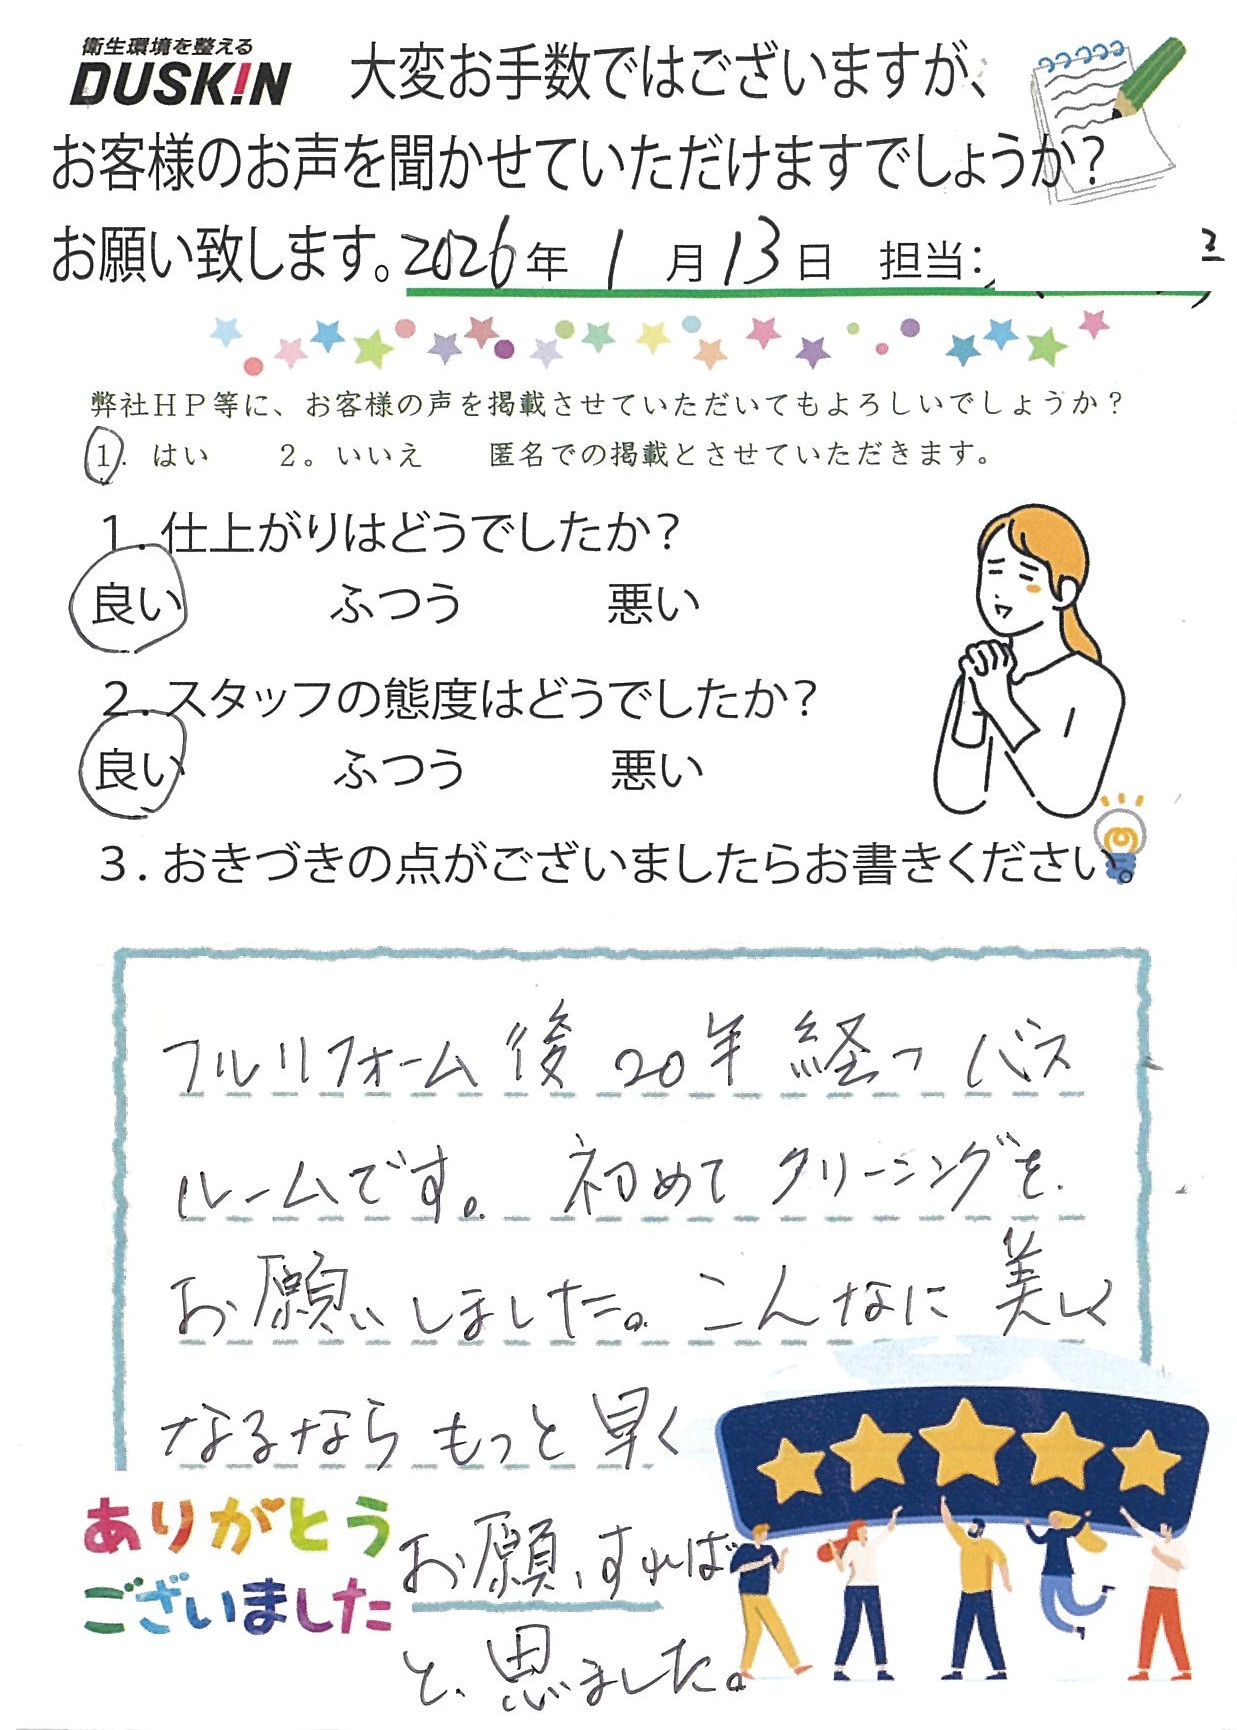 衛生環境を整える
DUSKIN 大変お手数ではございますが、
お客様のお声を聞かせていただけますでしょうか？
お願い致します。2026年 1月13日 担当：
弊社ＨＰ等に、お客様の声を掲載させていただいてもよろしいでしょうか？
1．はい 2。いいえ 匿名での掲載とさせていただきます。
１．仕上がりはどうでしたか？
良い ふつう 悪い
２．スタッフの態度はどうでしたか？
良い ふつう 悪い
３．おきづきの点がございましたらお書きください。
フルリフォーム後20年経つバス
ルームです。初めてクリーニングを
お願いしました。こんなに美しく
なるならもっと早く
お願いすれば
と、思いました。
ありがとう
ございました